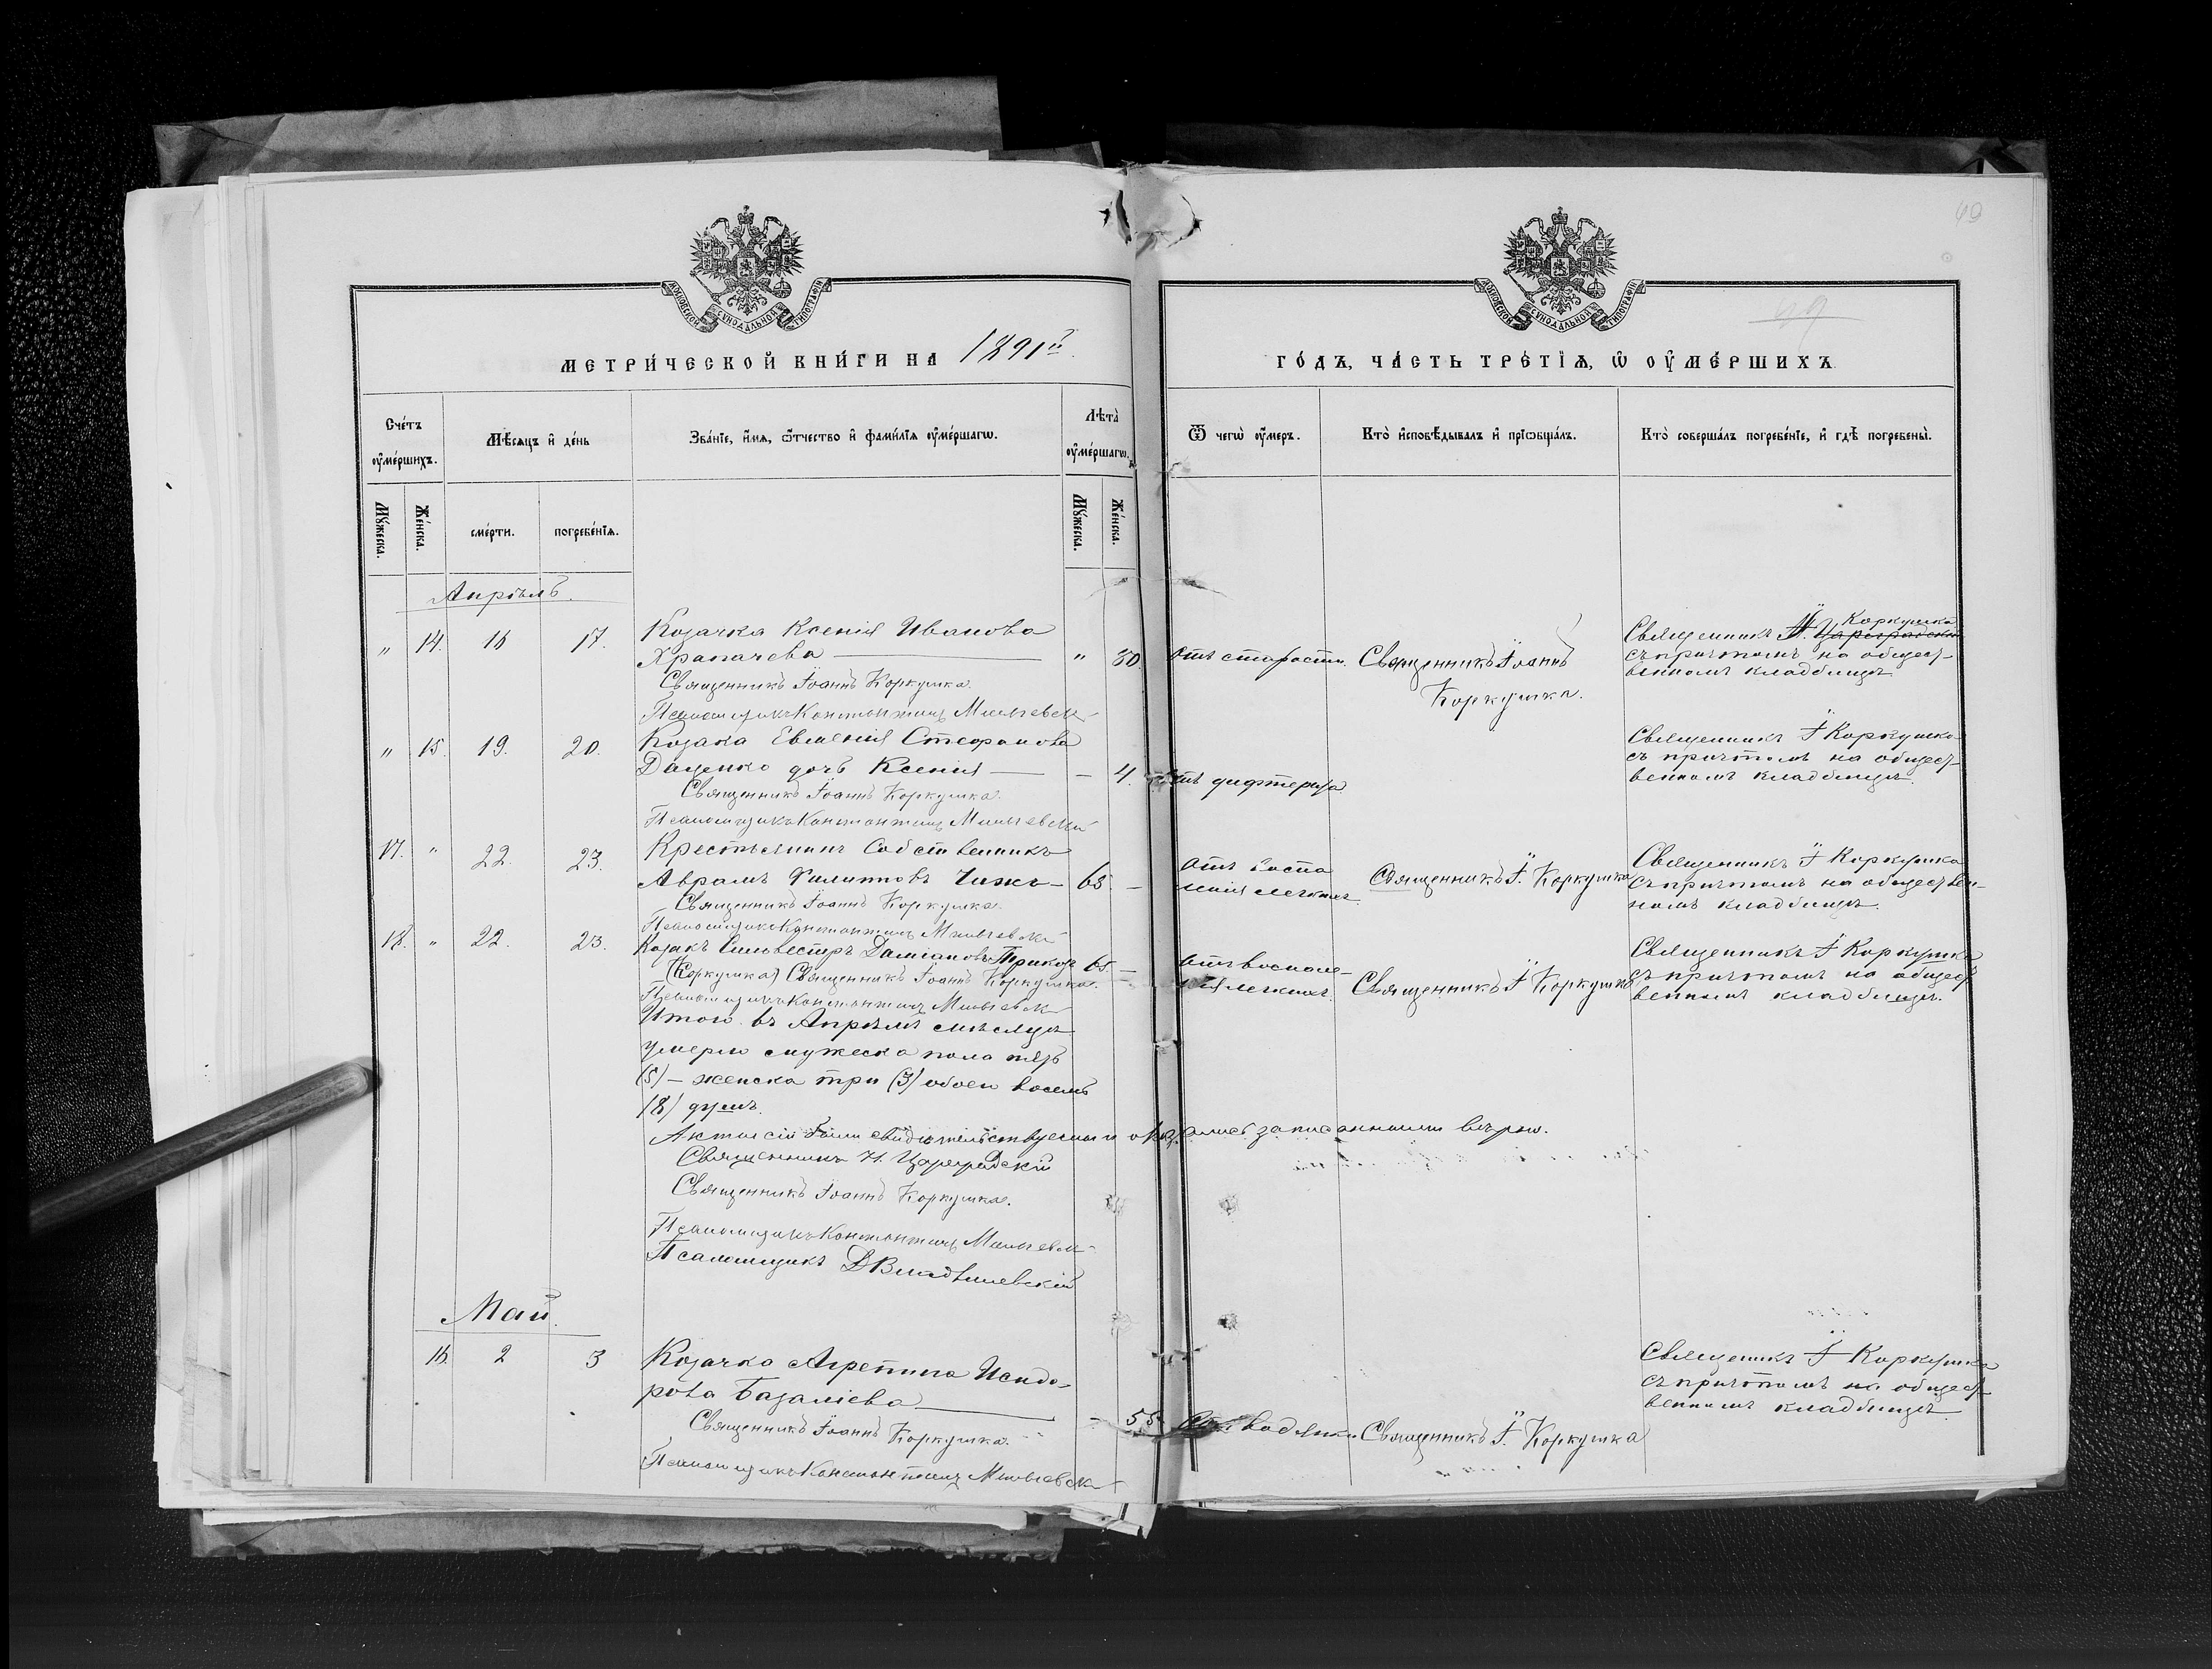 МОСКОВСКОЙ СѴНОДАЛЬНОЙ ТИПОГРАФІИ
МЕТРИ́ЧЕСКОЙ КНИ́ГИ НА 1891й
Сче́тъ ᲂу҆ме́ршихъ.
Мꙋ́жеска.
Же́нска.
Мѣ́сяцъ и҆ де́нь
сме́рти.
погребе́нїѧ.
Зва́нїе, и҆́мѧ, ѻ҆́тчество и҆ фами́лїѧ ᲂу҆ме́ршагѡ.
Лѣ́та ᲂу҆ме́ршагѡ.
Мꙋ́жеска.
Же́нска.
Апрѣль.
„ 14. 16 17. Козачка Ксенія Иванова
Храпачева — „ 80
Священникъ Іоаннъ Коркушка.
Псаломщикъ Константинъ
„ 15. 19. 20. Козака Евменія Стефанова
Даценко дочь Ксенія — – 4.
Священникъ Іоаннъ Коркушка.
Псаломщикъ Константинъ
17. „ 22. 23. Крестьянинъ Собственникъ
Аврамъ Филипповъ Чижъ – 65. –
Священникъ Іоаннъ Коркушка.
Псаломщикъ Константинъ
18. „ 22. 23. Козакъ Сильвестръ Даміановъ 65. –
(Коркушка) Священникъ Іоаннъ Коркушка.
Псаломщикъ Константинъ
Итого въ Апрѣлѣ мѣсяцѣ
умерло мужеска пола пять
(5) – женска три (3) обоего восемь
(8) душъ.
Акты сіи были свидѣтельствуемы и оказались записанными вѣрно.
Священникъ Н. Цареградскій
Священникъ Іоаннъ Коркушка.
Псаломщикъ Константинъ
Псаломщикъ
Май.
16. 2 3 Козачка Агрепина Исидо-
рова Базаліева — – 55
Священникъ Іоаннъ Коркушка.
Псаломщикъ Константинъ
МОСКОВСКОЙ СѴНОДАЛЬНОЙ ТИПОГРАФІИ
ГО́ДЪ, ЧА́СТЬ ТРЕ́ТЇѦ, Ѡ҆ ОУ҆МЕ́РШИХЪ.
Ѿ чегѡ̀ ᲂу҆́меръ.
Кто̀ и҆сповѣ́дывалъ и҆ прїѡбща́лъ.
Кто̀ соверша́лъ погребе́нїе, и҆ гдѣ̀ погребены̀.
Отъ старости. Священникъ Іоаннъ
Коркушка.
Священникъ І. Коркушка
съ причтомъ на общест-
венномъ кладбищѣ
Отъ дифтерита.
Священникъ І Коркушка
съ причтомъ на общест-
венномъ кладбищѣ.
Отъ воспа
ленія легкихъ. Священникъ І. Коркушка
Священникъ І Коркушка
съ причтомъ на обществен-
номъ кладбищѣ.
Отъ воспале-
нія легкихъ. Священникъ І Коркушка
Священникъ І Коркушка
съ причтомъ на общест
венномъ кладбищѣ.
Отъ водянки Священникъ І. Коркушка
Священникъ І Коркушка
съ причтомъ на общест-
венномъ кладбищѣ.